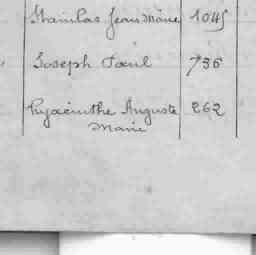 Stanislas Jean Marie 1045
Joseph Paul 736
Hyacinthe Auguste 262
Marie